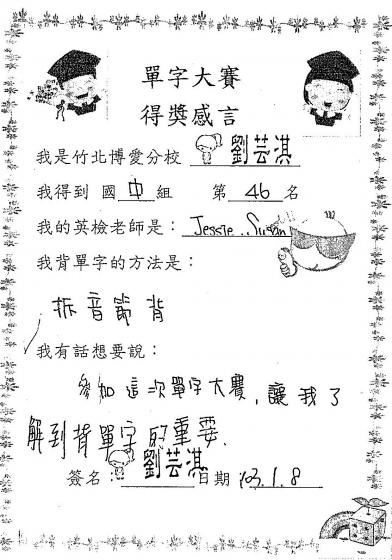 單字大賽
得獎感言
我是竹北博愛分校 劉芸淇
我得到 國中組 第 46 名
我的英檢老師是: Jessie..Susan
我背單字的方法是:
拆音節背
我有話想要說:
參加這次單字大賽,讓我了
解到背單字的重要.
簽名: 劉芸淇 日期 103.1.8